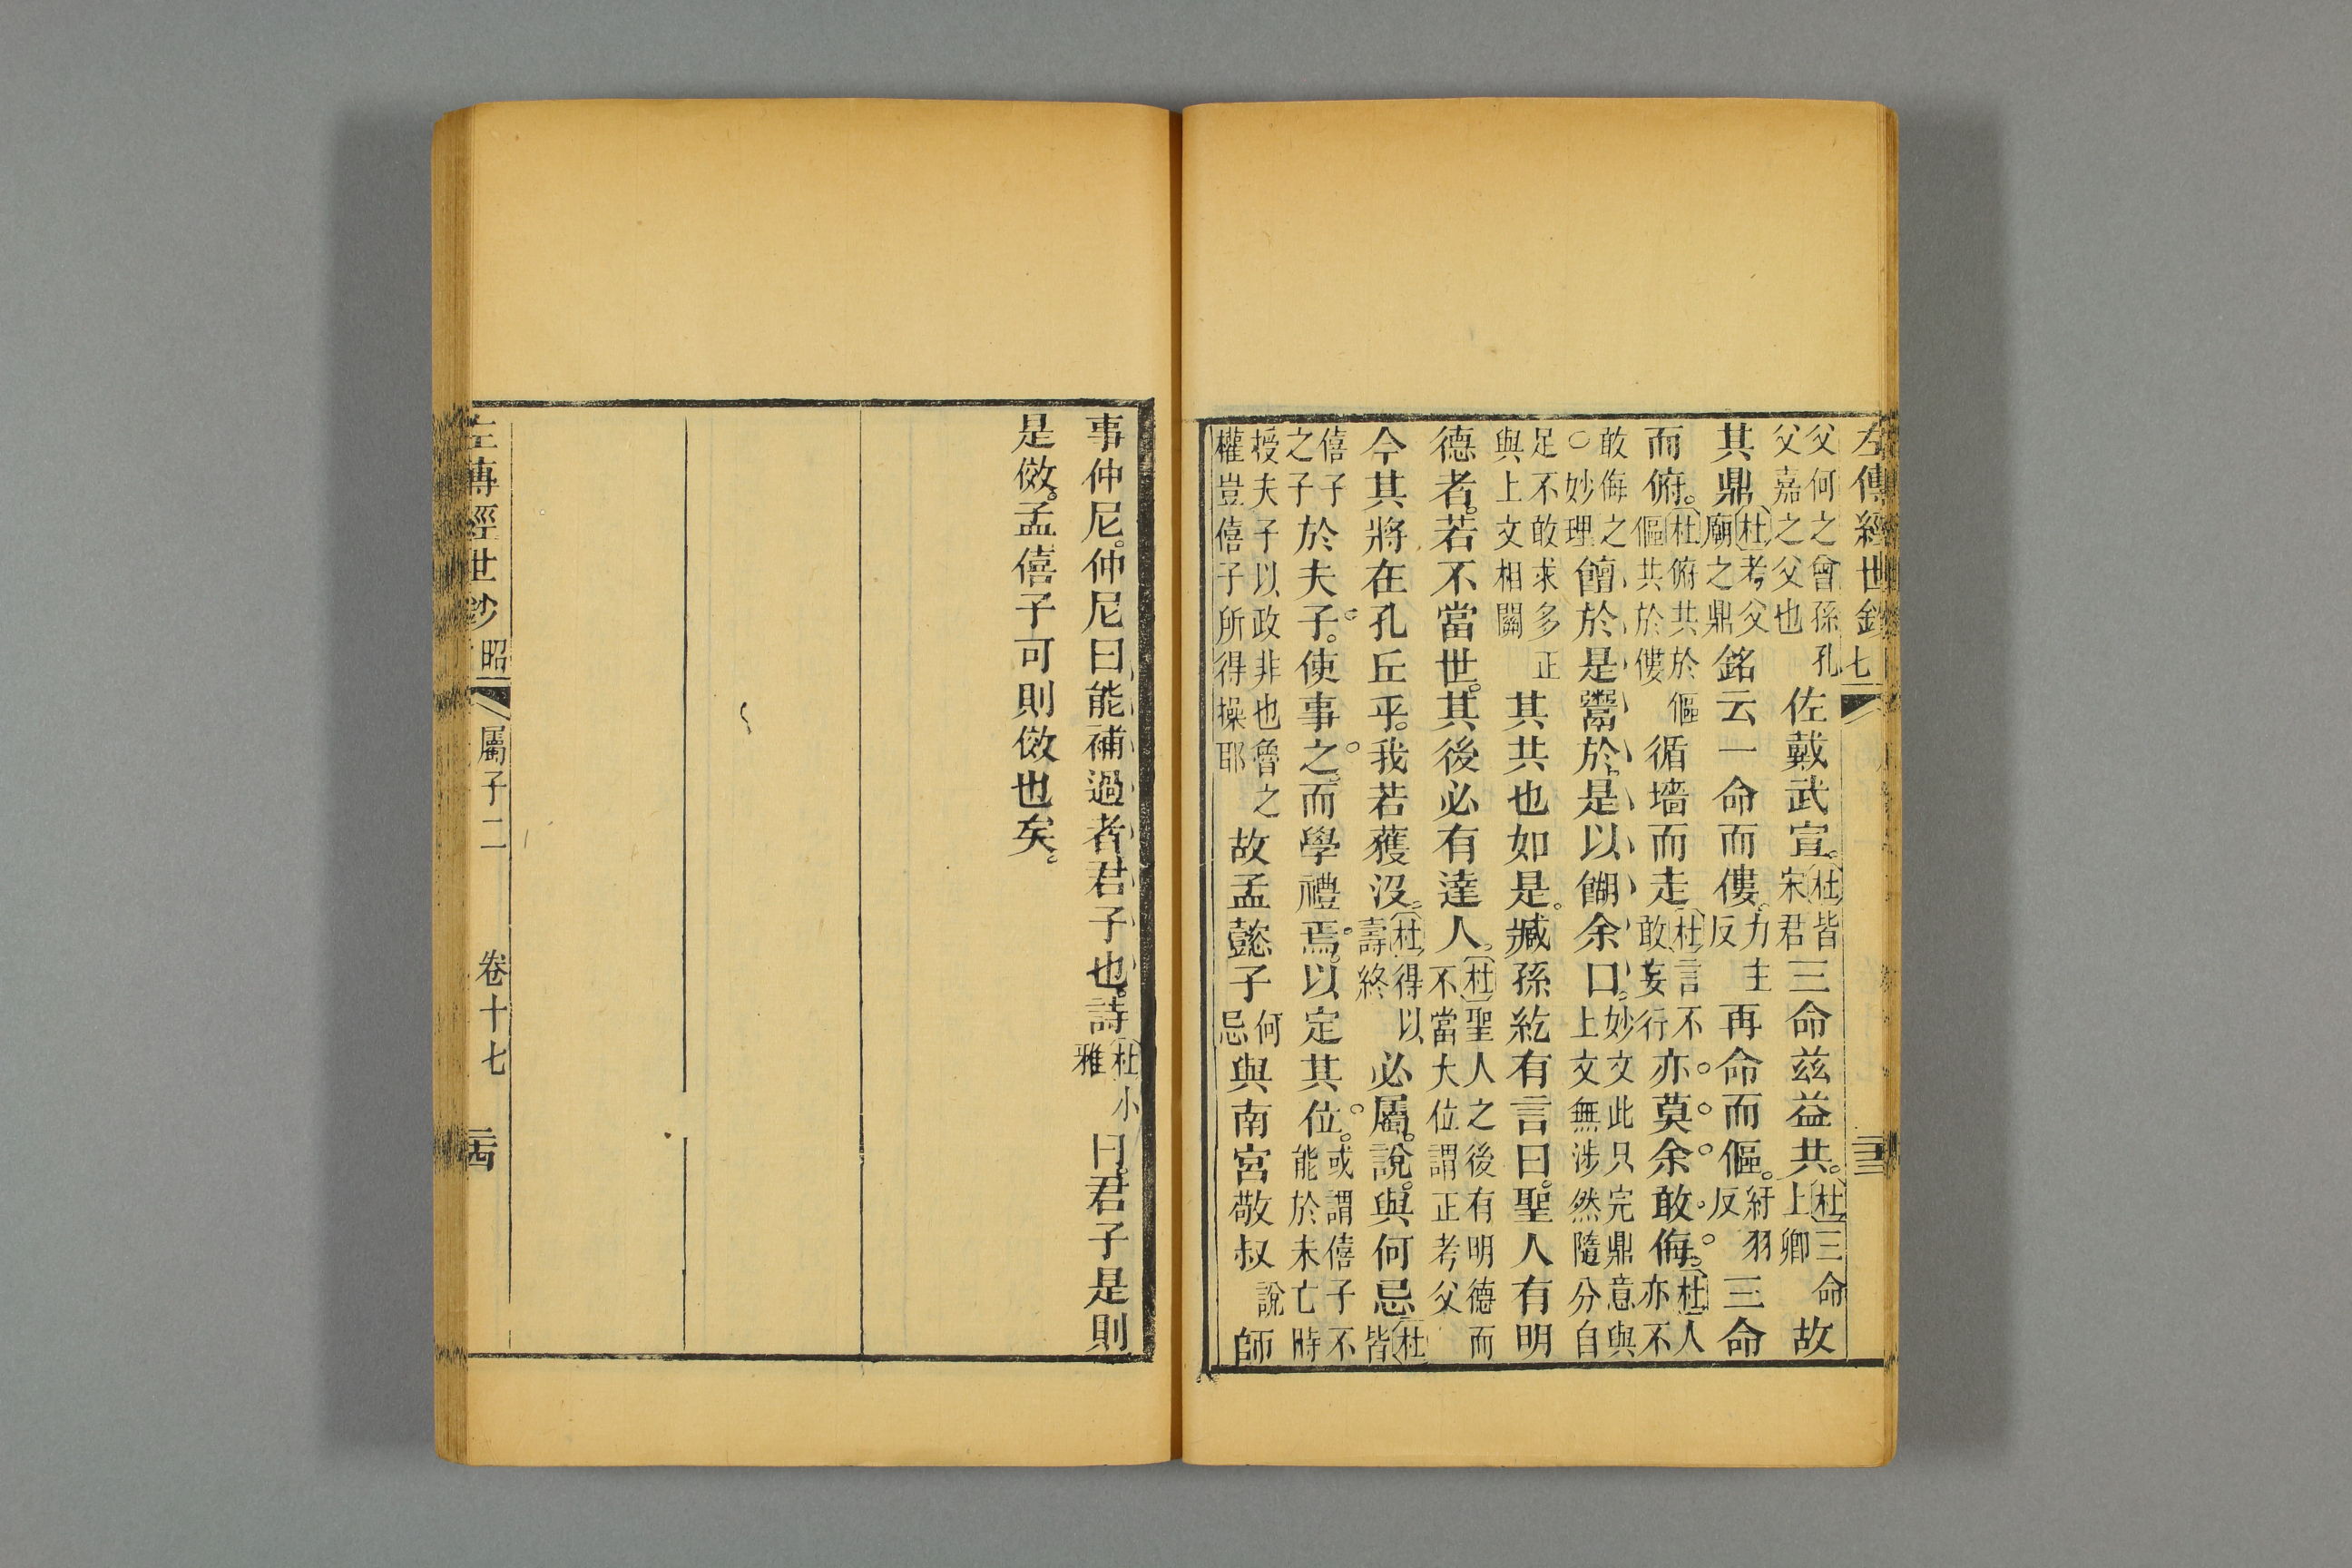 左傳經世鈔 七
父何之曾孫孔父嘉之父也佐戴武宣。杜皆宋君三命兹益共。杜三命上卿故
其鼎杜考父廟之鼎銘云一命而僂。力主反再命而傴。紆羽反三命
而俯。杜俯共於傴傴共於僂循墻而走杜言不敢妄行亦莫余敢侮。杜人亦不
敢侮之○妙理饘於是鬻於是以餬余口。妙文此只完鼎意與上文無涉然隨分自
足不敢求多正與上文相關其共也如是。臧孫紇有言曰。聖人有明
德者。若不當世。其後必有達人。杜聖人之後有明德而不當大位謂正考父
今其將在孔丘乎。我若獲沒。杜得以壽終必屬。說。與何忌杜皆
僖子之子於夫子。使事之。而學禮焉。以定其位。或謂僖子不能於未亡時
授夫子以政非也魯之權豈僖子所得操耶故孟懿子何忌與南宮敬叔說師
事仲尼。仲尼曰能補過者君子也。詩杜小雅曰。君子是則
是傚。孟僖子可則傚也矣。
左傳經世鈔 昭 屬子二 卷十七